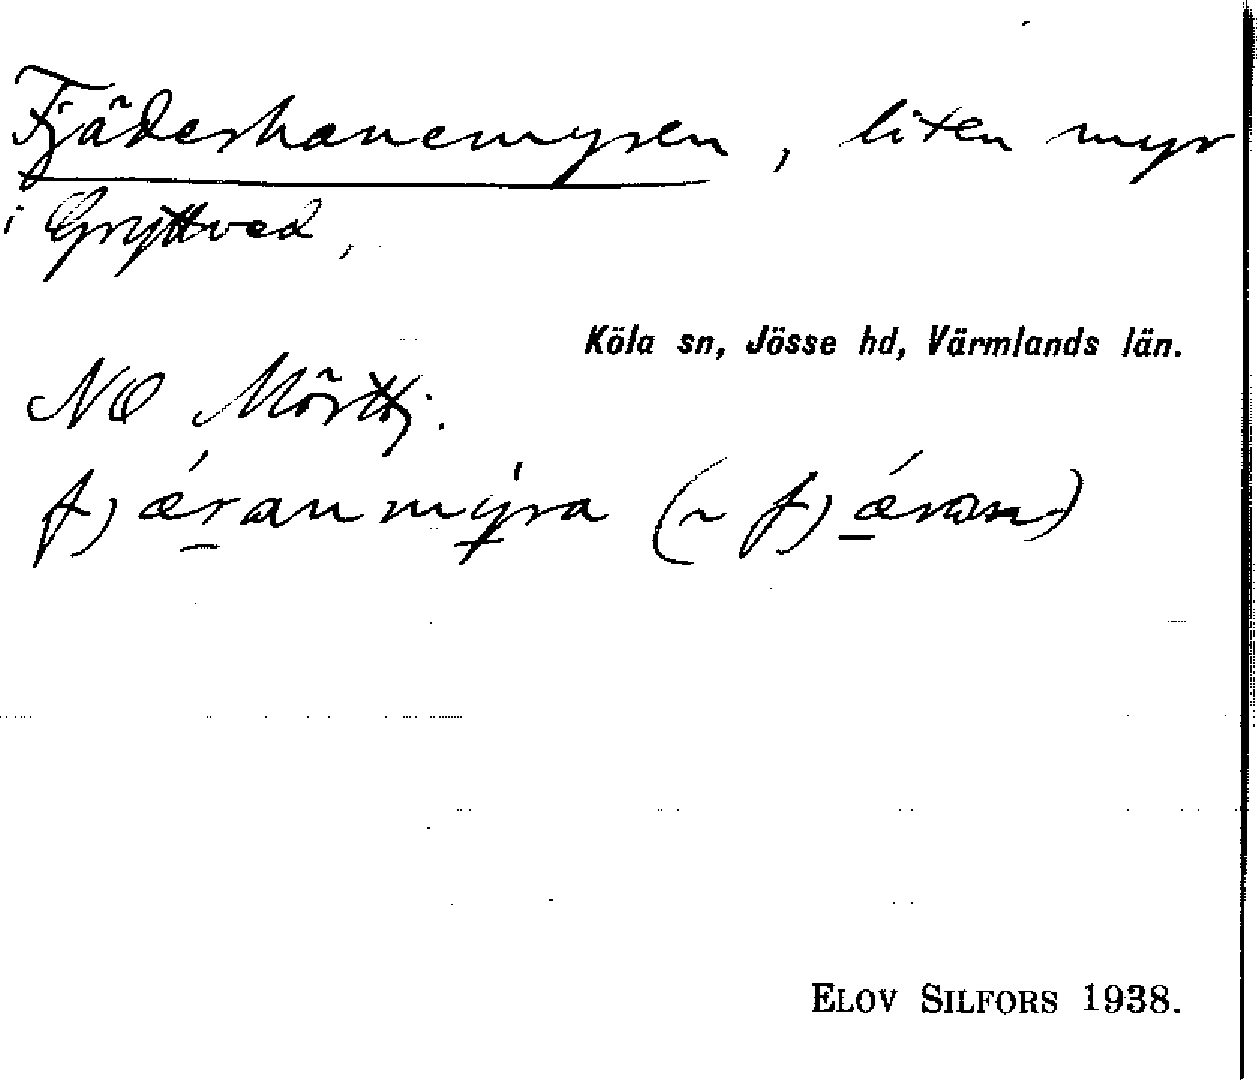 Fjäderhanemyren, liten myr
i Gryttved,
Köla sn, Jösse hd, Värmlands län.
NO Mörttj.
ELOV SILFORS 1938.